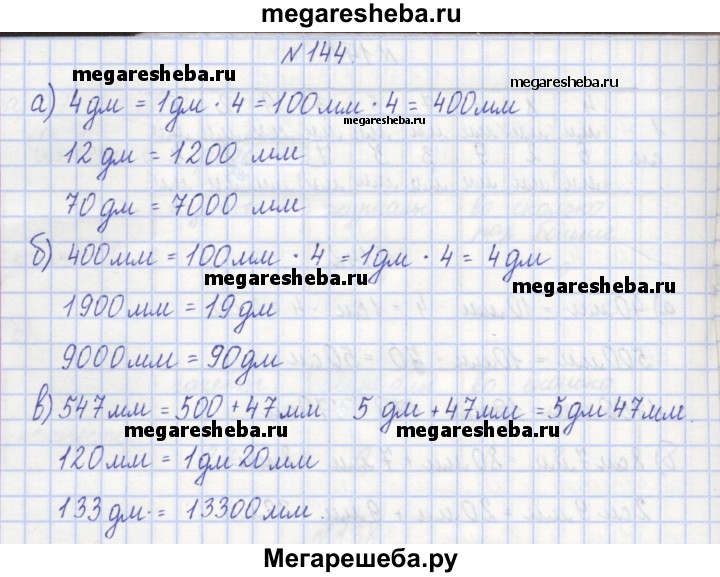 megaresheba.ru
N 144.
megaresheba.ru
megaresheba.ru
а) 4дм = 1дм · 4 = 100мм · 4 = 400мм
megaresheba.ru
12 дм = 1200 мм
70 дм = 7000 мм
б) 400мм = 100мм · 4 = 1дм · 4 = 4 дм
megaresheba.ru
megaresheba.ru
1900мм = 19дм
9000мм = 90дм
в) 547мм = 500 + 47мм 5 дм + 47мм = 5дм 47мм.
megaresheba.ru
megaresheba.ru
120мм = 1дм 20мм
133дм. = 13300мм.
Мегарешеба.ру